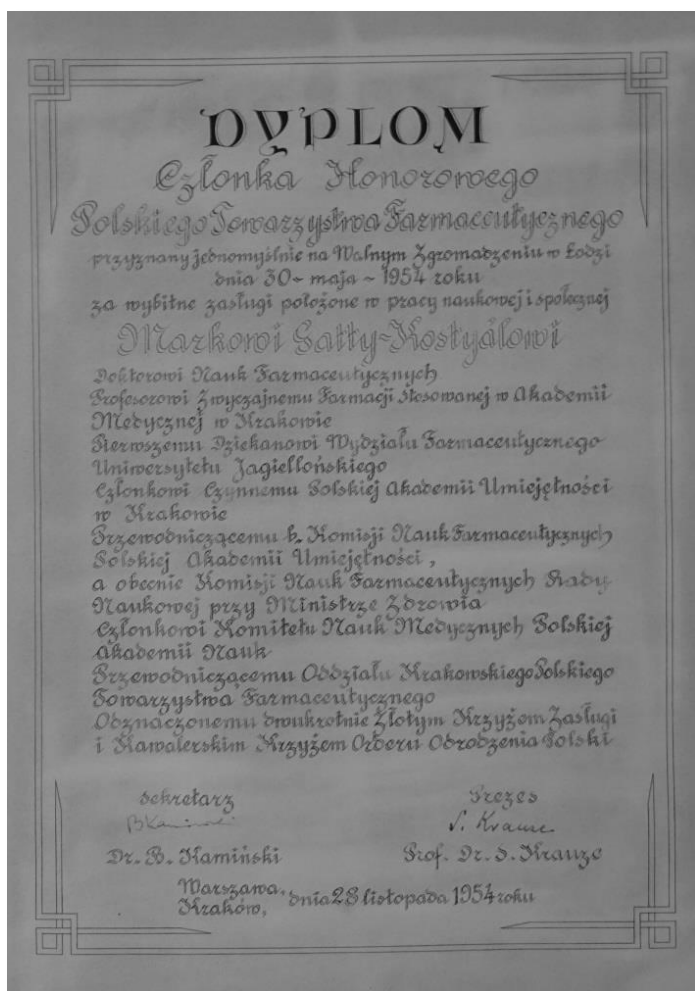 DYPLOM
Członka Honorowego
Polskiego Towarzystwa Farmaceutycznego
przyznany jednomyślnie na Walnym Zgromadzeniu w Łodzi
dnia 30 - maja - 1954 roku
za wybitne zasługi położone w pracy naukowej i społecznej
Markowi Gatty-Kostyálowi
Doktorowi Nauk Farmaceutycznych
Profesorowi Zwyczajnemu Farmacji Stosowanej w Akademii
Medycznej w Krakowie
Pierwszemu Dziekanowi Wydziału Farmaceutycznego
Uniwersytetu Jagiellońskiego
Członkowi Czynnemu Polskiej Akademii Umiejętności
w Krakowie
Przewodniczącemu b. Komisji Nauk Farmaceutycznych
Polskiej Akademii Umiejętności,
a obecnie Komisji Nauk Farmaceutycznych Rady
Naukowej przy Ministrze Zdrowia
Członkowi Komitetu Nauk Medycznych Polskiej
Akademii Nauk
Przewodniczącemu Oddziału Krakowskiego Polskiego
Towarzystwa Farmaceutycznego
Odznaczonemu dwukrotnie Złotym Krzyżem Zasługi
i Kawalerskim Krzyżem Orderu Odrodzenia Polski
Sekretarz
Prezes
BKamiński
S. Krauze
Dr. B. Kamiński
Prof. Dr. S. Krauze
Warszawa,
Kraków, dnia 28 listopada 1954 roku